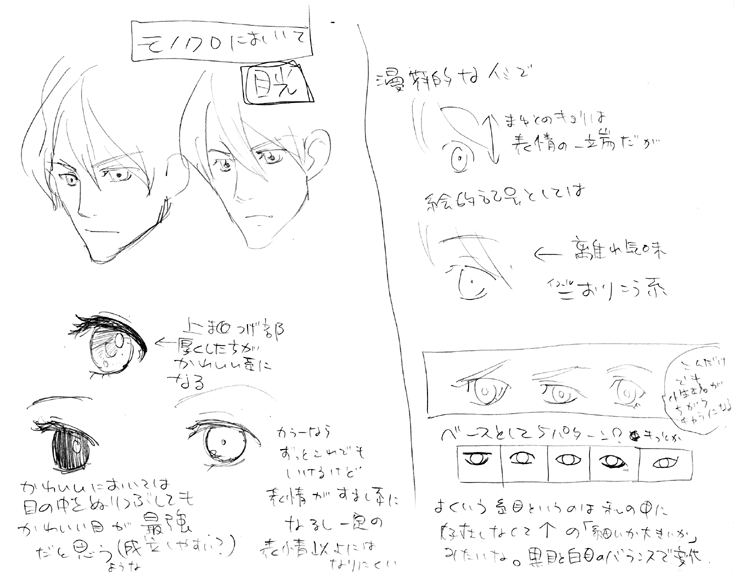 モノクロにおいて
目光
上まつげ部
厚くしたらが
かわいい系に
なる
かわいいにおいては
目の中をぬりつぶしても
かわいい目が最強
だと思う(成立しやすい?)
ような
カラーなら
ずっとこれでも
いけるけど
表情がすまし系に
なるし一定の
表情以上には
なりにくい
漫画的なイミで
まゆとのキョリは
表情の一端だが
絵的記号としては
← 離れ気味
おりこう系
これだけ
でも
が
ちがう
ベースとして5パターン?
よくいう糸目というのは私の中に
存在しなくて↑の「細いか大きいか」
みたいな。黒目と白目のバランスで変化